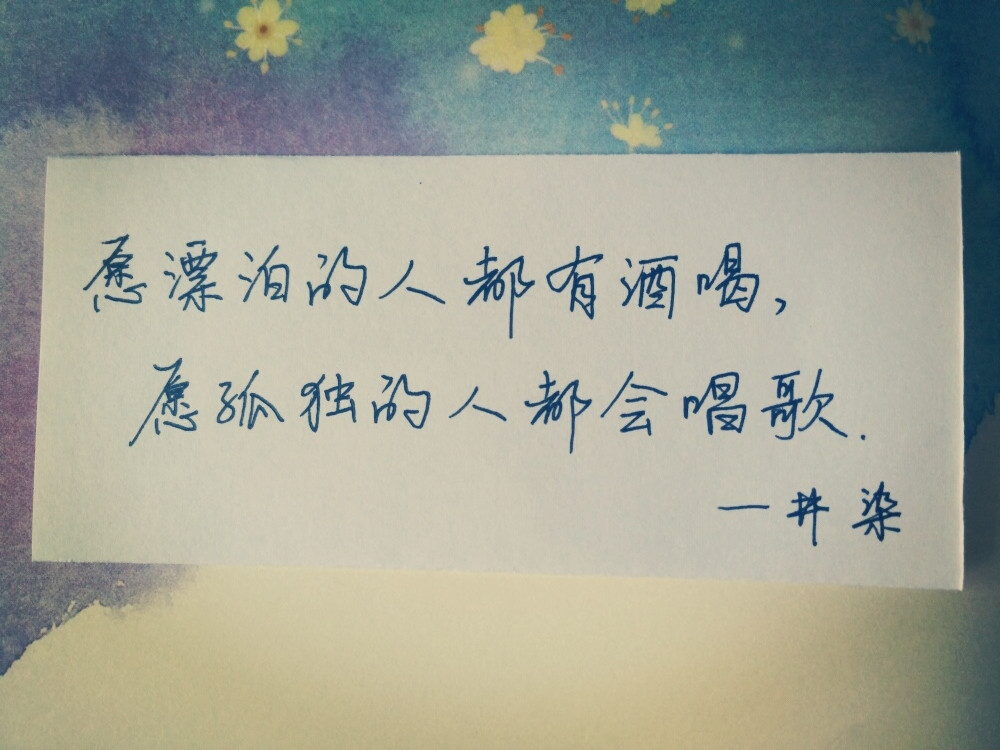 愿漂泊的人都有酒喝，
愿孤独的人都会唱歌.
—井染